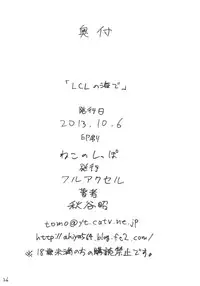 奥付
「LCLの海で」
発行日
2013.10.6
印刷
ねこのしっぽ
発行
フルアクセル
著者
秋谷昭
tomo@yc.catv.ne.jp
※18歳未満の方の購読禁止です。
26